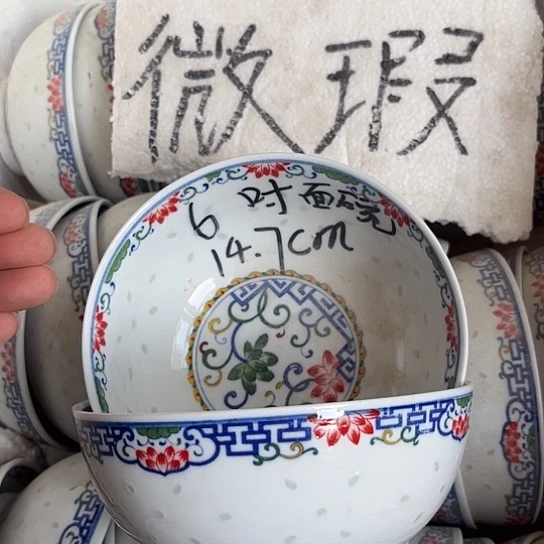 微瑕
6吋面碗
14.7cm